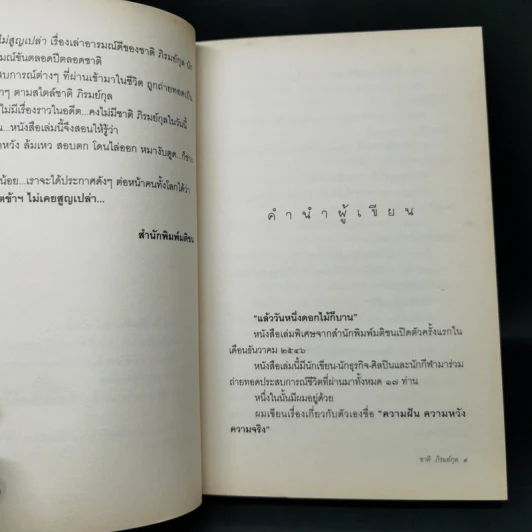 ไม่สูญเปล่า เรื่องเล่าอารมณ์ดีของชาติ ภิรมย์กุล นัก
มณ์ขันตลอดปีตลอดชาติ
สบการณ์ต่างๆ ที่ผ่านเข้ามาในชีวิต ถูกถ่ายทอดเป็น
ๆ ตามสไตล์ชาติ ภิรมย์กุล
ไม่มีเรื่องราวในอดีต...คงไม่มีชาติ ภิรมย์กุลในวันนี้
...หนังสือเล่มนี้จึงสอนให้รู้ว่า
หวัง ล้มเหว สอบตก โดนไล่ออก หมางับตูด...ก็ช่าง
น้อย...เราจะได้ประกาศดังๆ ต่อหน้าคนทั้งโลกได้ว่า
ตข้าฯ ไม่เคยสูญเปล่า...
สำนักพิมพ์มติชน
คำนำผู้เขียน
"แล้ววันหนึ่งดอกไม้ก็บาน"
หนังสือเล่มพิเศษจากสำนักพิมพ์มติชนเปิดตัวครั้งแรกใน
เดือนธันวาคม ๒๕๔๖
หนังสือเล่มนี้มีนักเขียน-นักธุรกิจ-ศิลปินและนักกีฬามาร่วม
ถ่ายทอดประสบการณ์ชีวิตที่ผ่านมาทั้งหมด ๑๘ ท่าน
หนึ่งในนั้นมีผมอยู่ด้วย
ผมเขียนเรื่องเกี่ยวกับตัวเองชื่อ "ความฝัน ความหวัง
ความจริง"
ชาติ ภิรมย์กุล ๙